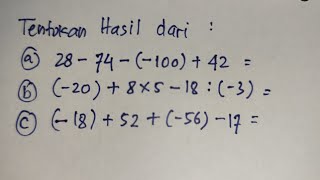 Tentukan Hasil dari :
(a) 28 - 74 - (-100) + 42 =
(b) (-20) + 8 x 5 - 18 : (-3) =
(c) (-18) + 52 + (-56) - 17 =